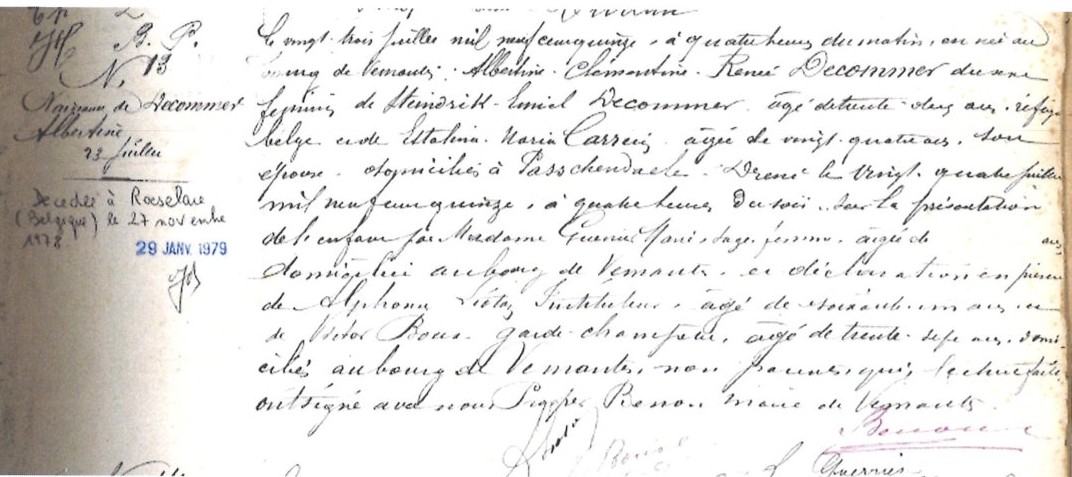 B. P.
N. 13
Naissance de Decommer
Albertine
23 juillet
Decedée à Roeselare
(Belgique) le 27 novembre
1978
29 JANV. 1979
Le vingt trois juillet mil neuf cent quinze, à quatre heures du matin, est née au
bourg de Vernantes Albertine Clémentine Renée Decommer du sexe
féminin de Heindrik Emiel Decommer âgé de trente deux ans, réfugié
belge et de Maria âgée de vingt quatre ans, son
épouse domiciliés à Passchendaele. Dressé le vingt quatre juillet
mil neuf cent quinze, à quatre heures du soir, sur la présentation
de l'enfant par Madame Marie sage femme, âgée de ans
domiciliée au bourg de Vernantes, et déclaration en présence
de Alphonse Instituteur, âgé de soixante un ans et
de Victor garde champêtre, âgé de trente sept ans, domi-
ciliés au bourg de Vernantes, non parents, qui, lecture faite
ont signé avec nous maire de Vernantes